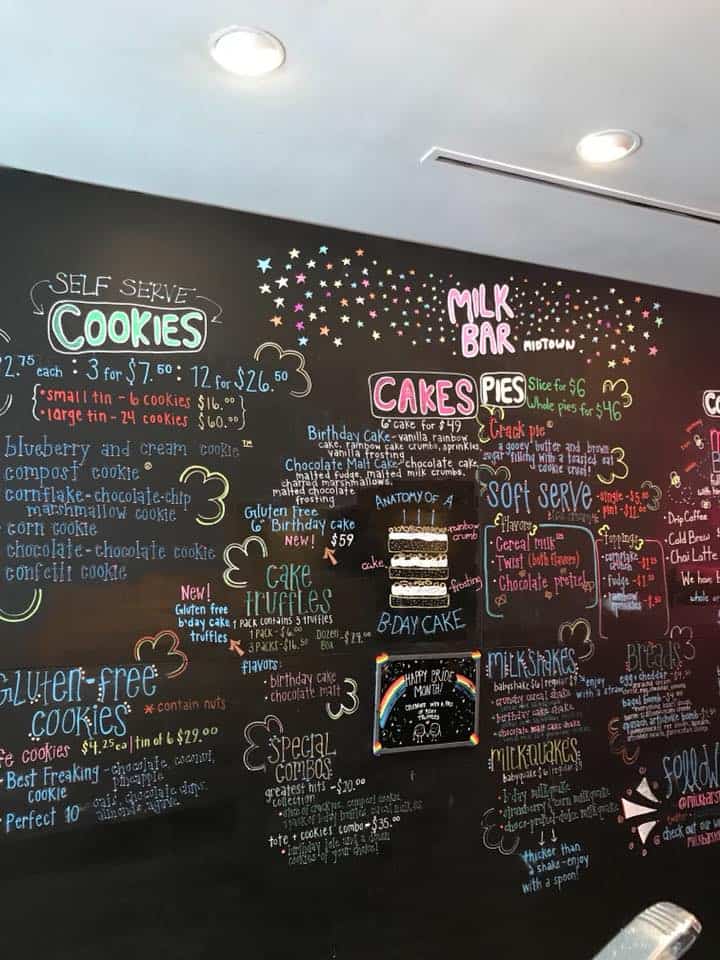 SELF SERVE
COOKIES
2.75 each : 3 for $7.50 : 12 for $26.50
• small tin - 6 cookies $16.00
• large tin - 24 cookies $60.00
blueberry and cream cookie ™
compost cookie ®
cornflake-chocolate-chip
marshmallow cookie
corn cookie
chocolate-chocolate cookie
confetti cookie
GLUTEN-FREE
COOKIES
* contain nuts
cookies $4.25 ea | tin of 6 $29.00
• Best Freaking - chocolate, coconut,
cookie pineapple
• Perfect 10 - oats, chocolate chips,
almonds, agave
MILK
BAR MIDTOWN
CAKES
6" cake for $49
Birthday Cake - vanilla rainbow
cake, rainbow cake crumbs, sprinkles,
vanilla frosting
Chocolate Malt Cake - chocolate cake,
malted fudge, malted milk crumbs,
charred marshmallows,
malted chocolate
frosting
Gluten Free
6" Birthday cake
NEW! $59
ANATOMY OF A
rainbow
crumb
cake
frosting
B'DAY CAKE
CAKE
TRUFFLES
New!
Gluten free
b'day cake
truffles
1 pack contains 3 truffles
1 Pack - $6.00
3 Packs - $16.50
Dozen
Box - $24.00
flavors:
• birthday cake
• chocolate malt
HAPPY PRIDE
MONTH!
SPECIAL
COMBOS
greatest hits - $20.00
collection
tote + cookies combo - $35.00
cookies of your choice!
PIES
Slice for $6
Whole pies for $46
Crack pie ®
a gooey butter and brown
sugar filling with a toasted oat
cookie crust!
SOFT SERVE
• single - $5.
• pint - $11.00
Flavors
• Cereal milk ™
• Twist (both flavors)
• Chocolate pretzel
Toppings
• cornflake
crunch
• fudge
sprinkles
MILKSHAKES
babyshake $6 | regular $9
enjoy
with a straw
• crunchy cereal shake
• birthday cake shake
• chocolate malt cake shake
MILKQUAKES
babyquake $6 | regular $9
• b'day milkquake
• strawberry + corn milkquake
thicker than
a shake - enjoy
with a spoon!
BREADS
egg + cheddar - $3.50
bagel bomb
spinach artichoke bomb
Drip Coffee
Cold Brew
Chai Latte
We have
FOLLOW
@milkbars
twitter
check out our
milkbars